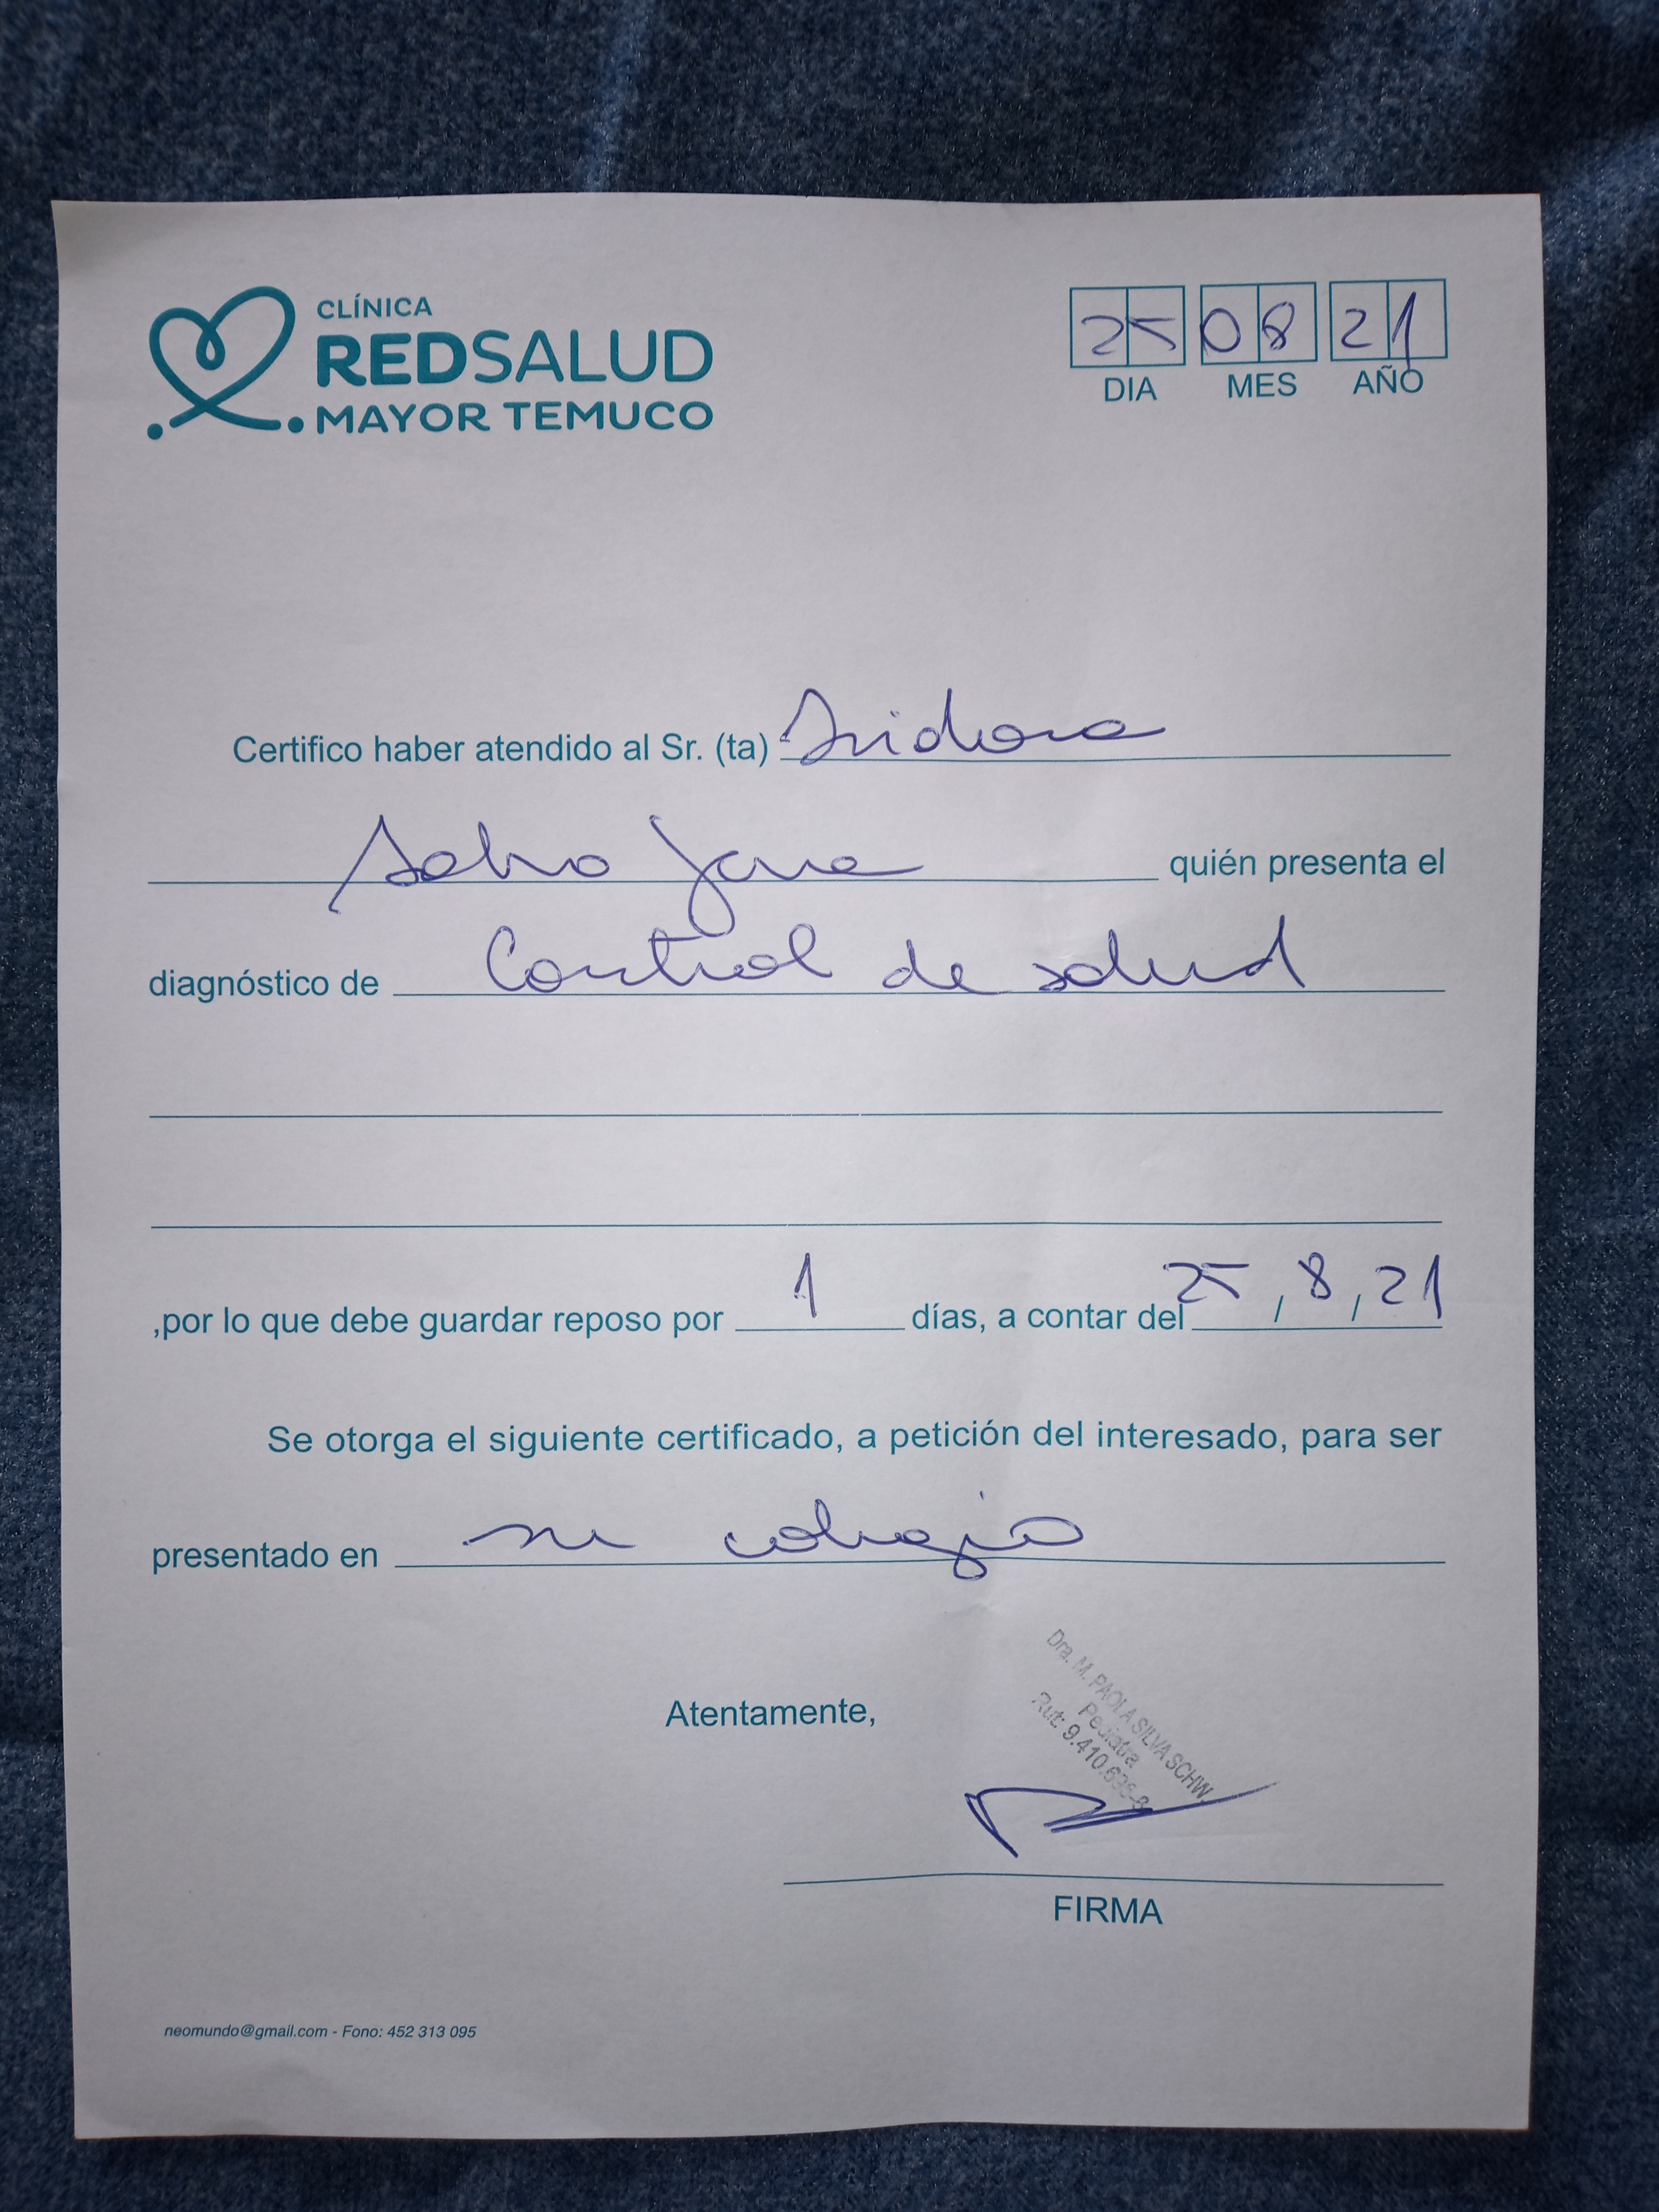 CLÍNICA
REDSALUD
MAYOR TEMUCO
25 08 21
DIA MES AÑO
Certifico haber atendido al Sr. (ta) Isidora
quién presenta el
diagnóstico de Control de salud
,por lo que debe guardar reposo por 1 días, a contar del 25 / 8 / 21
Se otorga el siguiente certificado, a petición del interesado, para ser
presentado en su colegio
Dra. M. PAOLA SILVA SCHW.
Pediatra
Atentamente,
Rut:
FIRMA
neomundo@gmail.com - Fono: 452 313 095